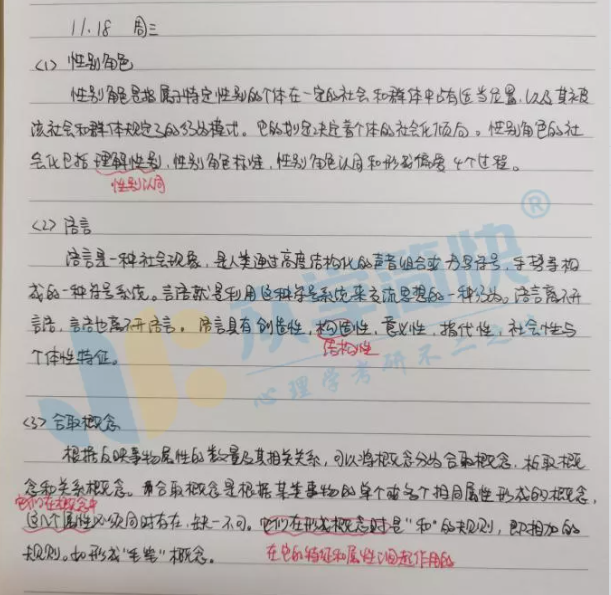 11.18 周三
<1> 性别角色
性别角色是指属于特定性别的个体在一定的社会和群体中占有适当位置,以及其被
该社会和群体规定了的行为模式。它的规定决定着个体的社会化倾向。性别角色的社
会化包括理解性别,性别角色标准,性别角色认同和形成偏爱4个过程。
性别认同
<2> 语言
语言是一种社会现象,是人类通过高度结构化的声音组合或书写符号,手势等构
成的一种符号系统。言语就是利用这种符号系统来交流思想的一种行为。语言离不开
言语,言语也离不开语言。语言具有创造性,构造性,意义性,指代性,社会性与
结构性
个体性特征。
心理学考研不二之
<3> 合取概念
根据反映事物属性的数量及其相关关系,可以将概念分为合取概念,析取概
念和关系概念。合取概念是根据某类事物的单个或多个相同属性形成的概念,
它们在概念中
这几个属性必须同时存在,缺一不可。它们在形成概念时是“和”的规则,即相加的
规则。如形成“毛笔”概念。
在它的特征和属性
起作用的
®